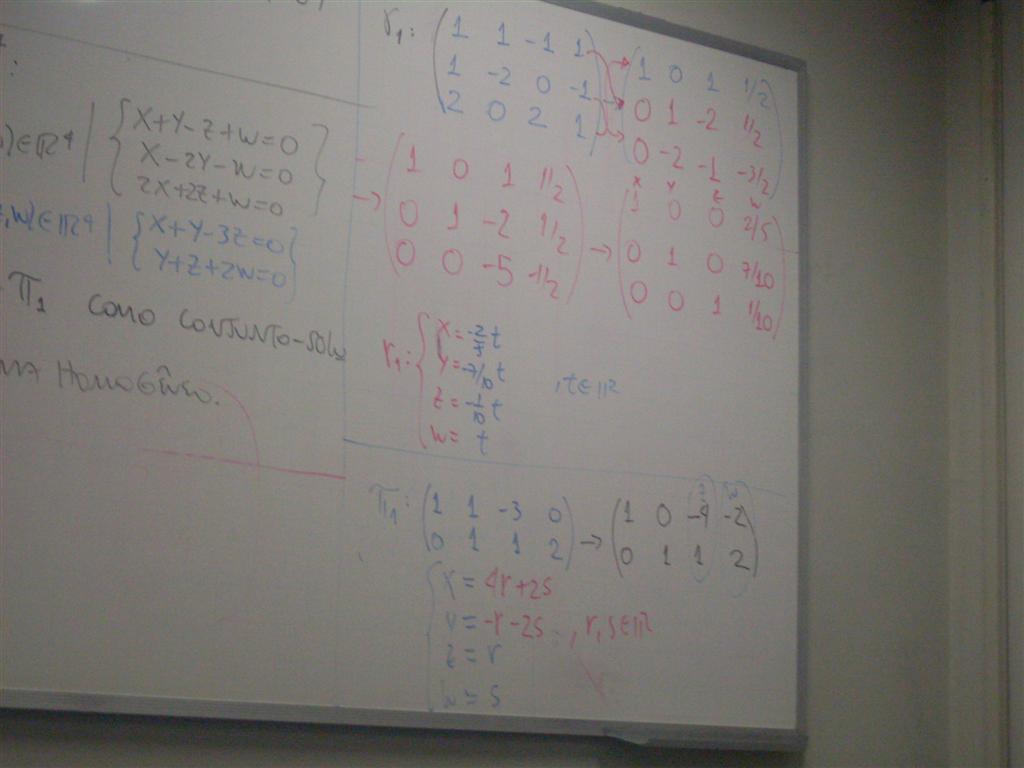 :
)∈ℝ⁴ | { X+Y-Z+W=0
X-2Y-W=0
2X+2Z+W=0 }
,W)∈ℝ⁴ | { X+Y-3Z=0
Y+Z+2W=0 }
π₁ COMO CONJUNTO-SOLU
HOMOGÊNEO.
r₁: ( 1 1 -1 1
1 -2 0 -1
2 0 2 1 )
→ ( 1 0 1 1/2
0 1 -2 1/2
0 -2 -1 -3/2 )
→ ( 1 0 1 1/2
0 1 -2 1/2
0 0 -5 -1/2 )
X Y Z W
→ ( 1 0 0 2/5
0 1 0 7/10
0 0 1 1/10 )
r₁: { X = -2/5 t
Y = -7/10 t , t∈ℝ
Z = -1/10 t
W = t
π₁: ( 1 1 -3 0
0 1 1 2 )
Z W
→ ( 1 0 -4 -2
0 1 1 2 )
{ X = 4r+2s
Y = -r-2s , r,s∈ℝ
Z = r
W = s